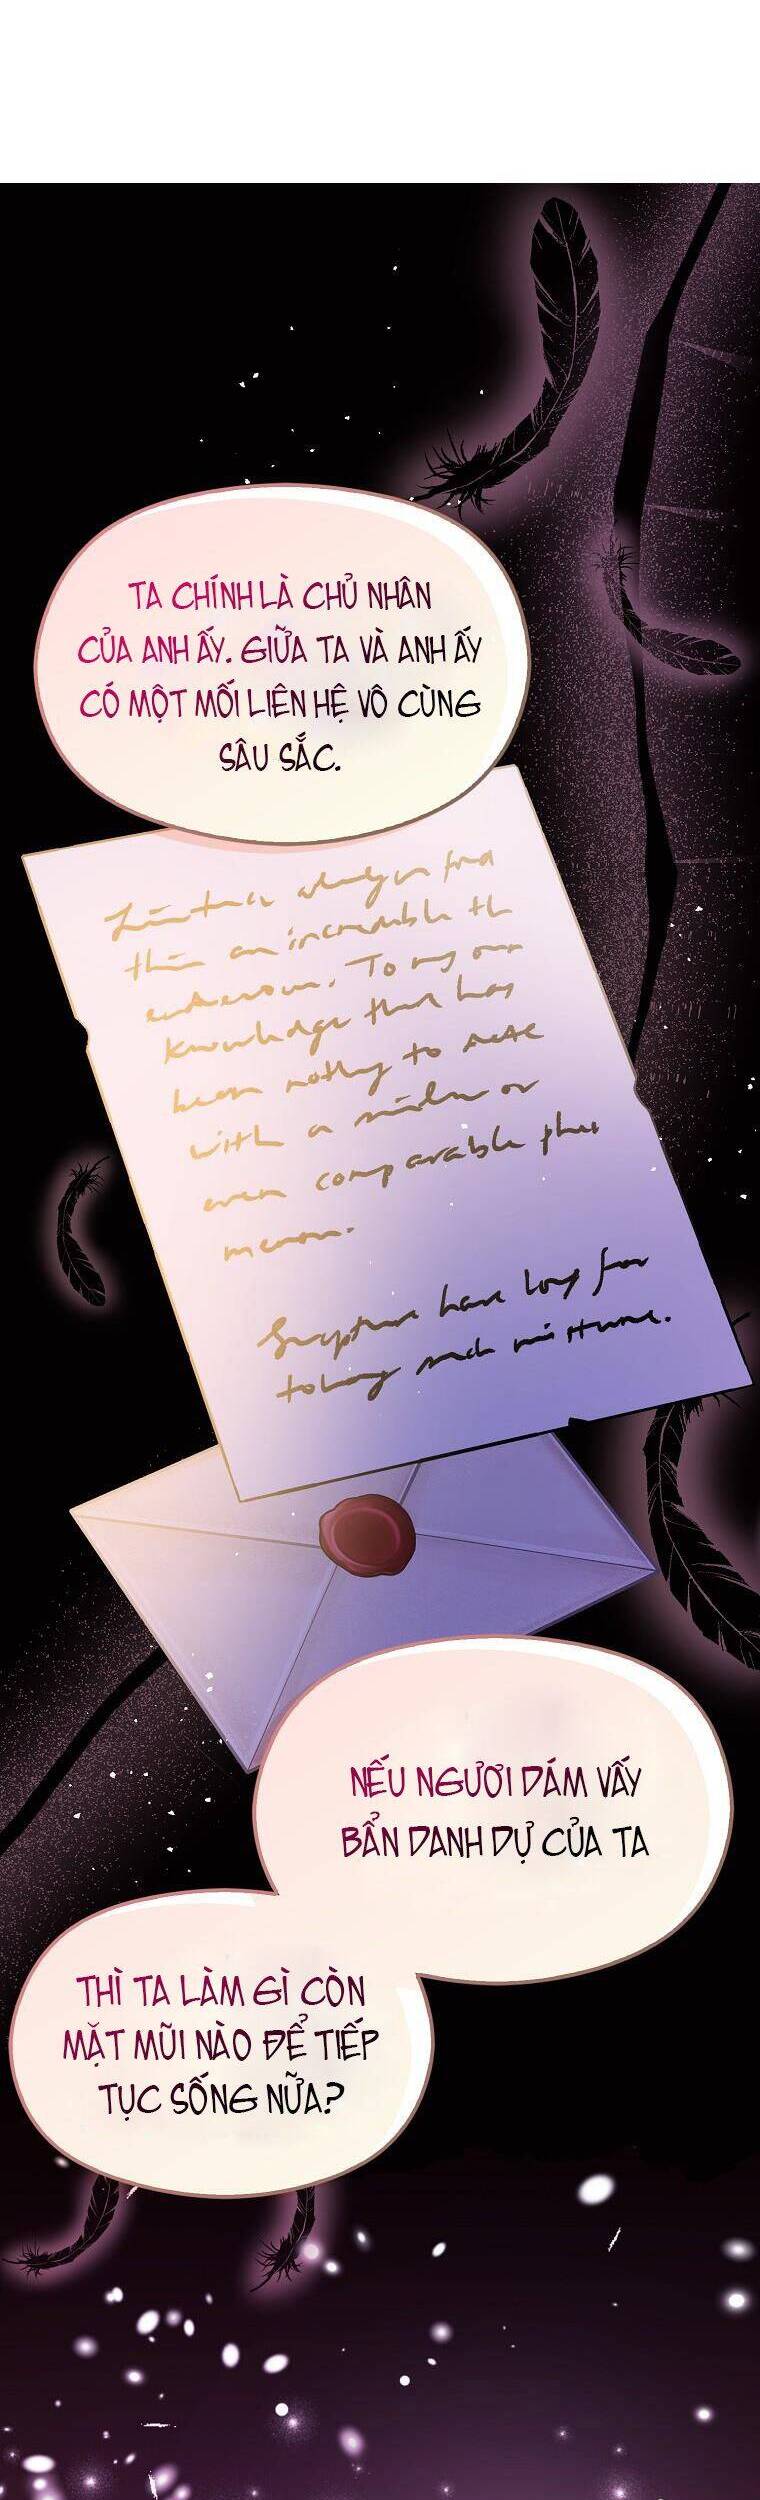 TA CHÍNH LÀ CHỦ NHÂN
CỦA ANH ẤY. GIỮA TA VÀ ANH ẤY
CÓ MỘT MỐI LIÊN HỆ VÔ CÙNG
SÂU SẮC.
an incredible
To my own
knowledge that has
been to
with a or
even comparable
have long for
such mixture.
NẾU NGƯƠI DÁM VẤY
BẨN DANH DỰ CỦA TA
THÌ TA LÀM GÌ CÒN
MẶT MŨI NÀO ĐỂ TIẾP
TỤC SỐNG NỮA?